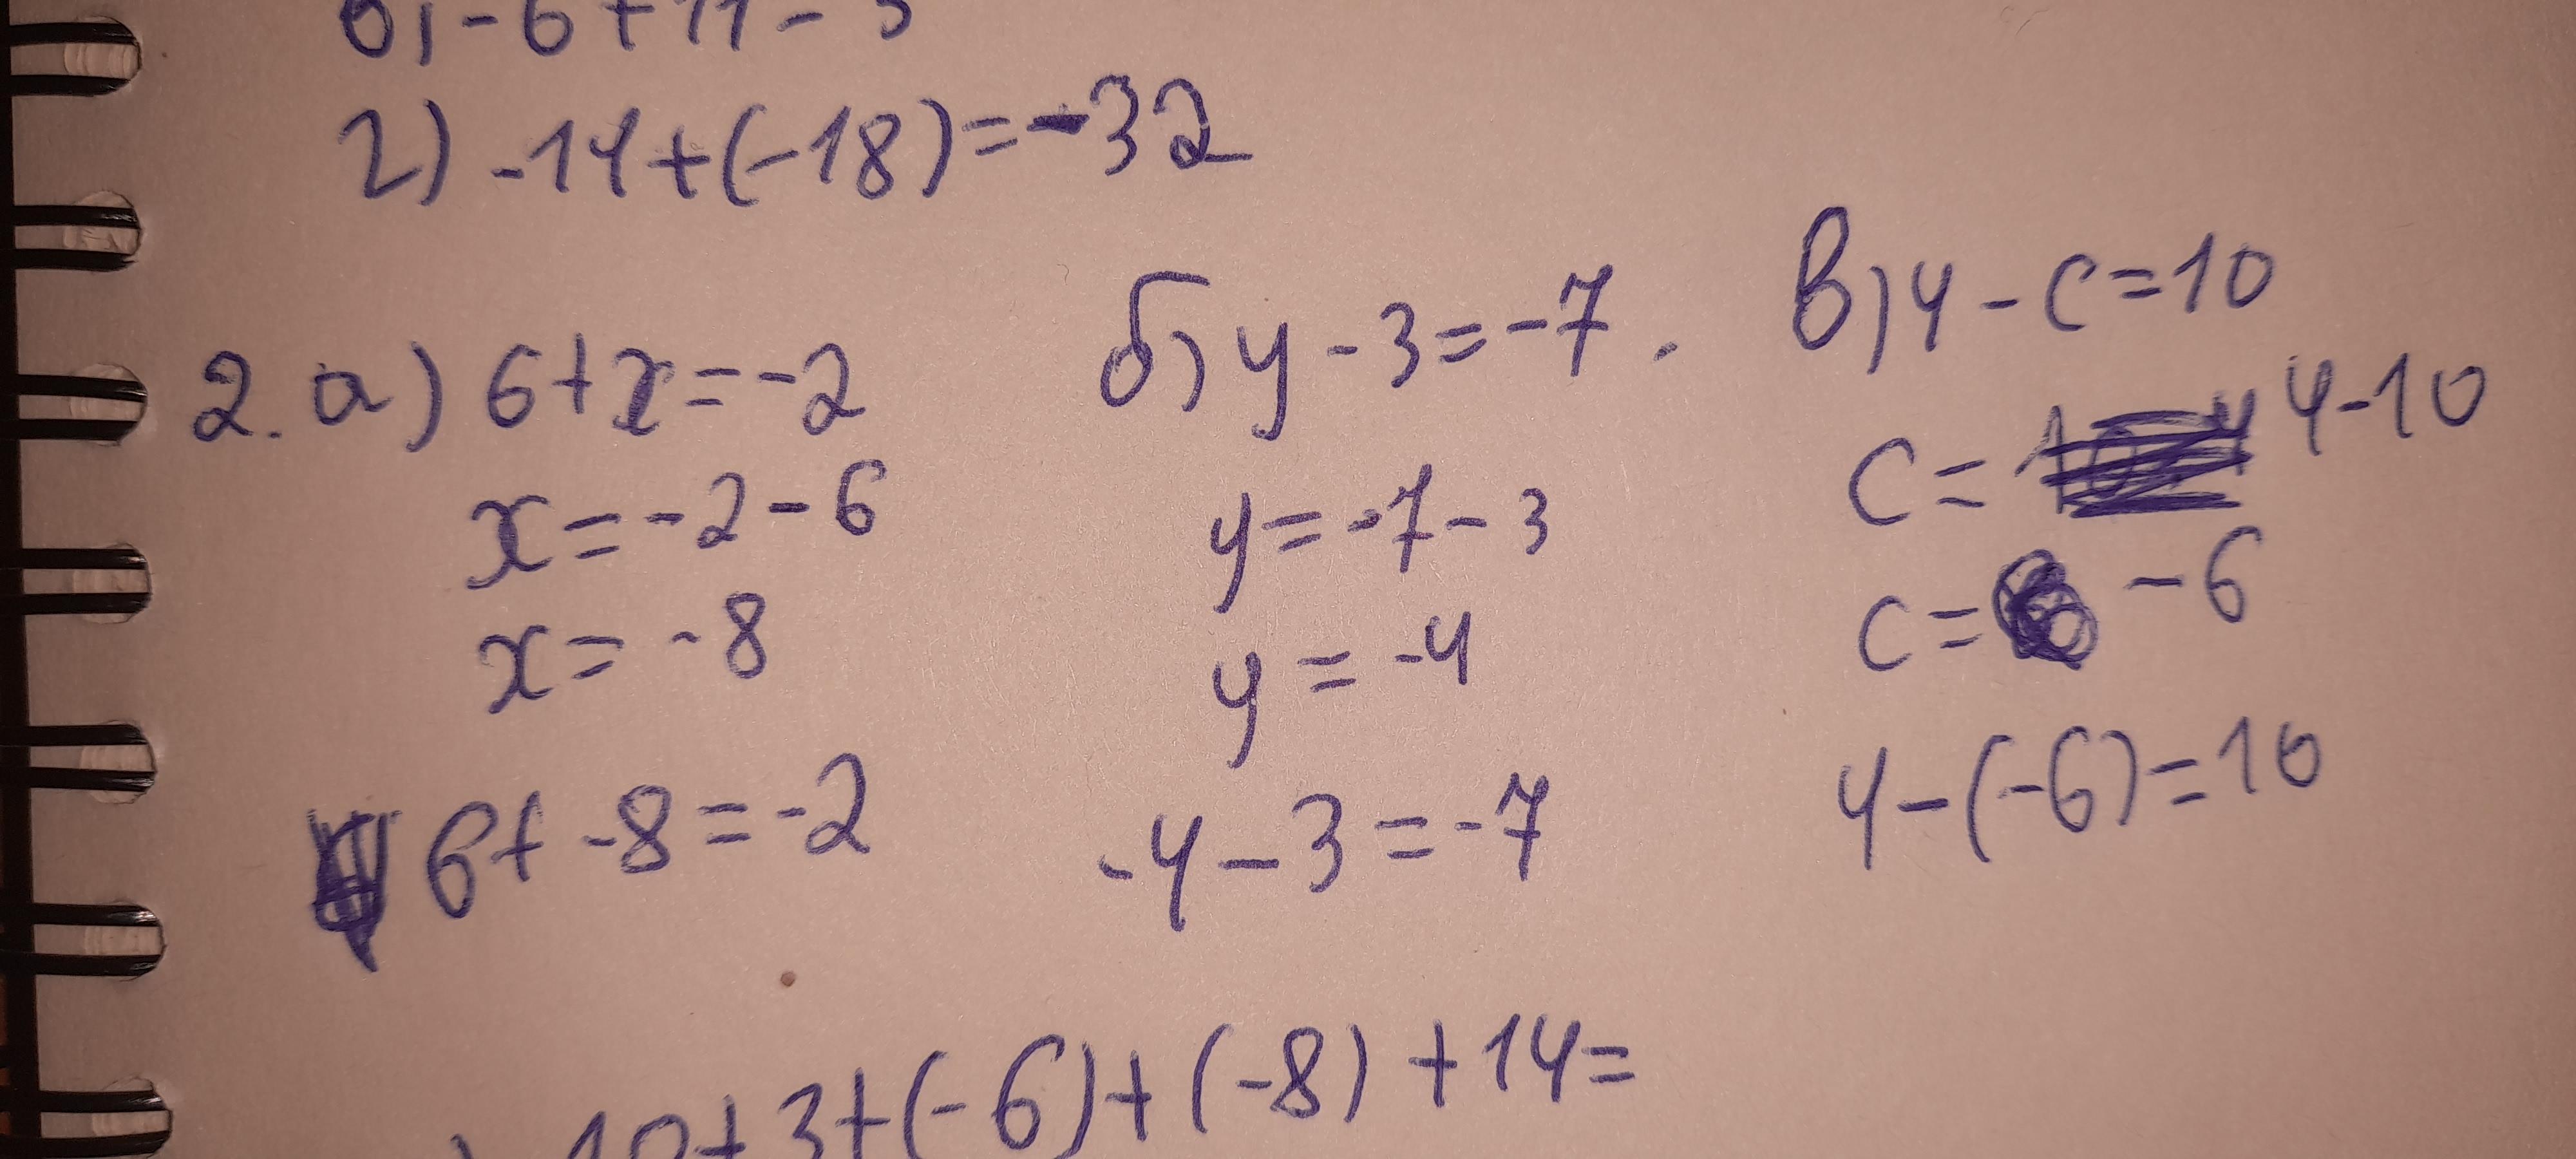 г) -14+(-18)=-32
2. а) 6+x=-2
x=-2-6
x=-8
6+-8=-2
б) y-3=-7.
y=-7-3
y=-4
-4-3=-7
в) 4-c=10
c= 4-10
c= -6
4-(-6)=10
10+3+(-6)+(-8)+14=